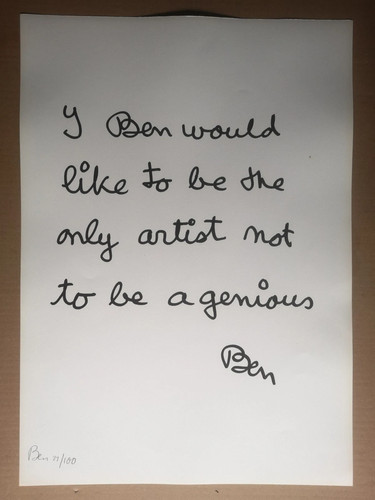 I Ben would
like to be the
only artist not
to be a genious
Ben
Ben 77/100